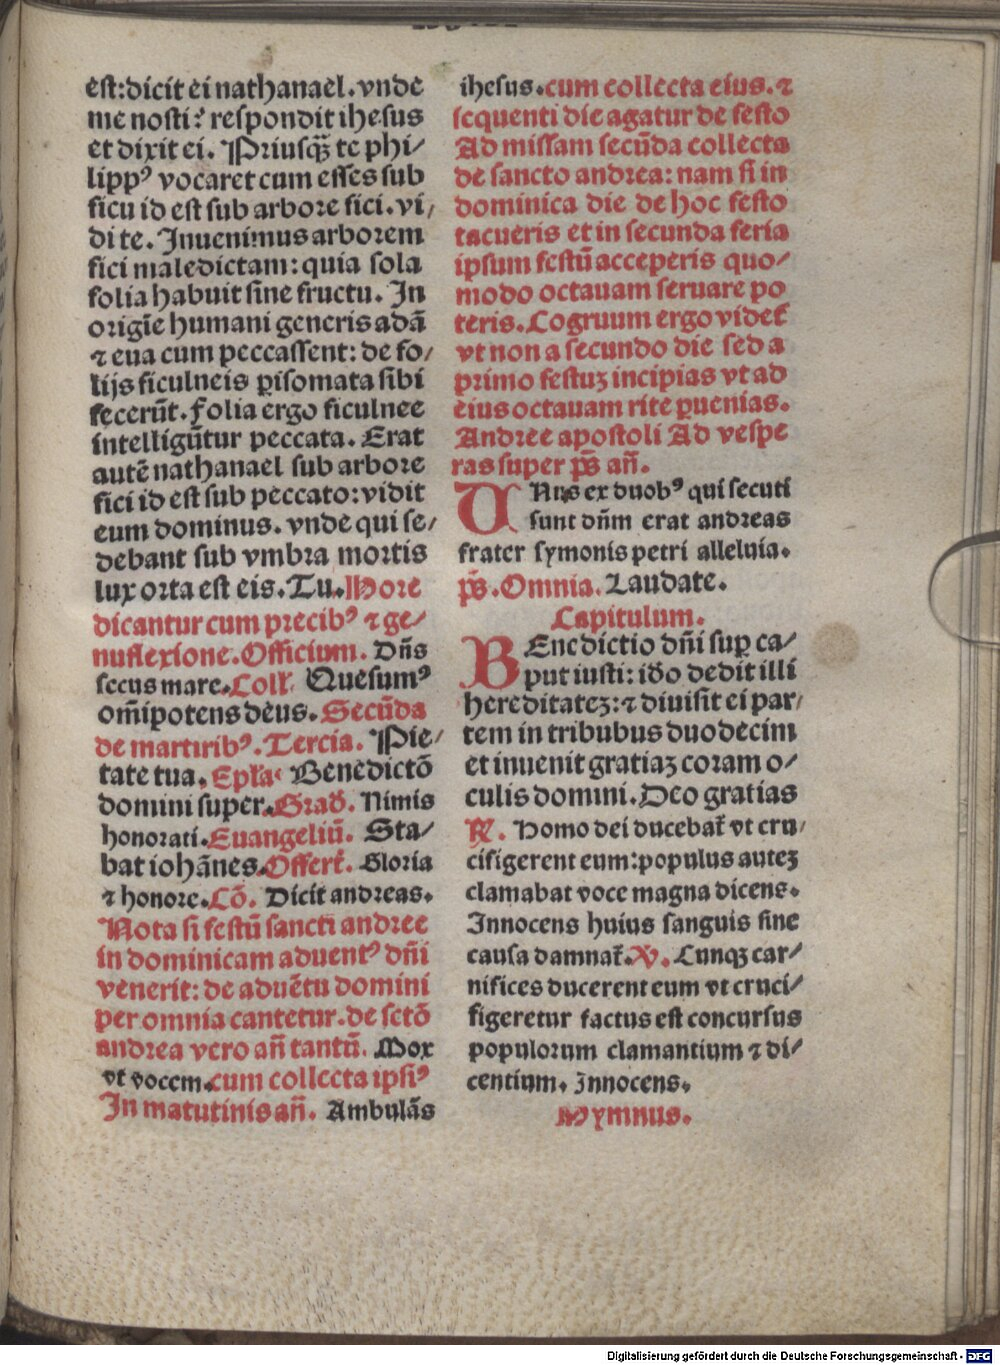 est:dicit ei nathanael.vnde
me nosti? respondit ihesus
et dixit ei. Priusqꝫ te phi/
lippꝰ vocaret cum esses sub
ficu id est sub arbore fici.vi/
di te. Inuenimus arborem
fici maledictam:quia sola
folia habuit sine fructu. In
origīe humani generis adā
⁊ eua cum peccassent: de fo/
lijs ficulneis ꝑisomata sibi
fecerūt.folia ergo ficulnee
intelligūtur peccata. Erat
autē nathanael sub arbore
fici id est sub peccato:vidit
eum dominus. vnde qui se/
debant sub vmbra mortis
lux orta est eis.Tu.Hore
dicantur cum precibꝰ ⁊ ge/
nuflexione.Officium. Dn̄s
secus mare.Coll. Quesumꝰ
om̄ipotens deus. Secūda
de martiribꝰ. Tercia. Pie/
tate tua. Ep̄la Benedictō
domini super.Grad̄. Nimis
honorati.Euangeliū. Sta/
bat iohānes.Offert̄. Gloria
⁊ honore.Cō. Dicit andreas.
Nota si festū sancti andree
in dominicam aduentꝰ dn̄i
venerit: de aduētu domini
per omnia cantetur.de sctō
andrea vero an̄ tantū. Mox
vt vocem.cum collecta ipsiꝰ
In matutinis an̄. Ambulās
ihesus.cum collecta eius.⁊
sequenti die agatur de festo
Ad missam secūda collecta
de sancto andrea: nam si in
dominica die de hoc festo
tacueris et in secunda feria
ipsum festū acceperis quo/
modo octauam seruare po
teris.Cogruum ergo videt̄
vt non a secundo die sed a
primo festuꝫ incipias vt ad
eius octauam rite ꝑuenias.
Andree apostoli Ad vespe
ras super ps̄ an̄.
UNus ex duobꝰ qui secuti
sunt dn̄m erat andreas
frater symonis petri alleluia.
ps̄. Omnia. Laudate.
Capitulum.
BEnedictio dn̄i suꝑ ca/
put iusti: iđo dedit illi
hereditateꝫ:⁊ diuisit ei par/
tem in tribubus duodecim
et inuenit gratiaꝫ coram o/
culis domini.Deo gratias
℞. Homo dei ducebat̄ vt cru/
cifigerent eum:populus auteꝫ
clamabat voce magna dicens.
Innocens huius sanguis sine
causa damnat̄.℣. Cunqꝫ car/
nifices ducerent eum vt cruci/
figeretur factus est concursus
populorum clamantium ⁊ di/
centium. Innocens.
Hymnus.
Digitalisierung gefördert durch die Deutsche Forschungsgemeinschaft - DFG